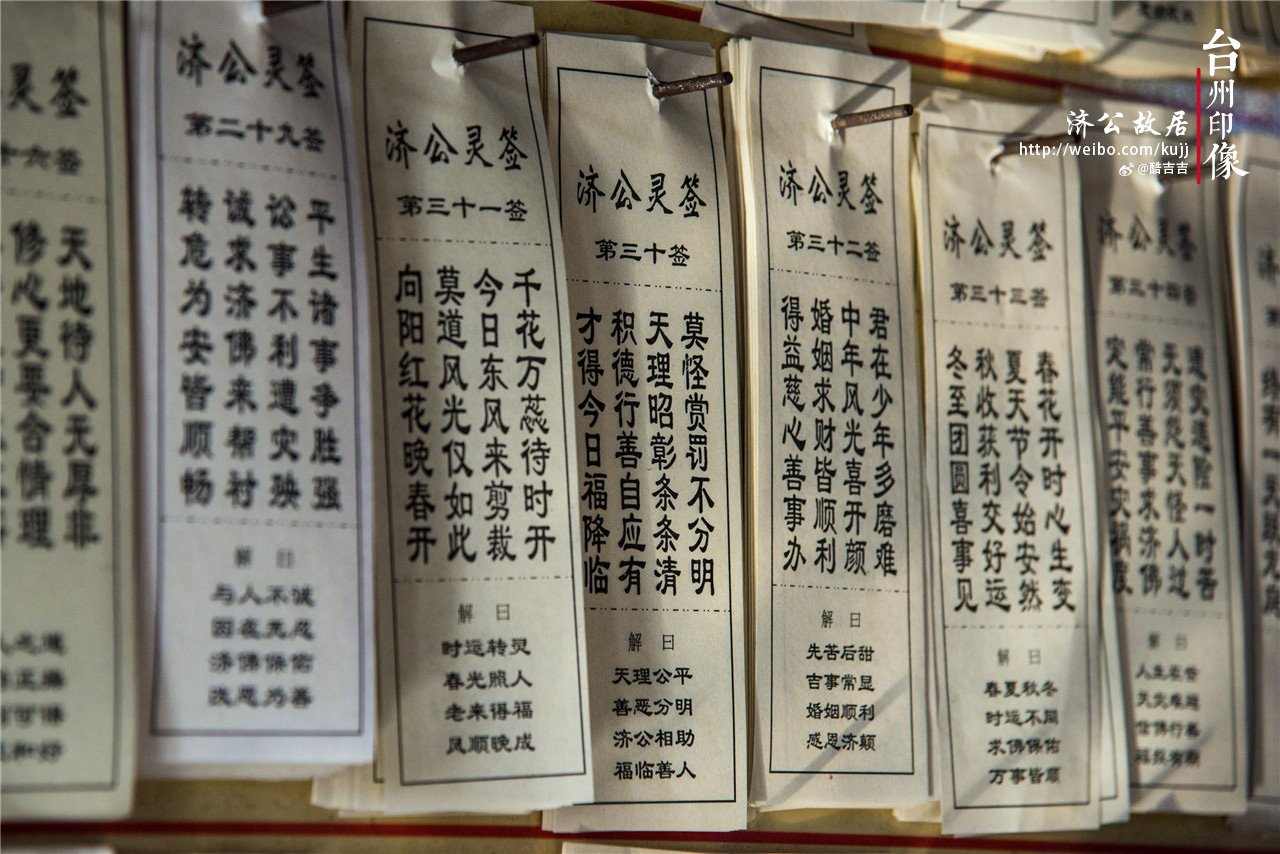 台州印像
济公故居
http://weibo.com/kujj
@酷吉吉
灵签
十六签
天地待人无厚非
修心更要合情理
济公灵签
第二十九签
平生诸事争胜强
讼事不利遭灾殃
诚求济佛来帮衬
转危为安皆顺畅
解曰
与人不诚
因在无忍
济佛保佑
恶为善
济公灵签
第三十一签
千花万蕊待时开
今日东风来剪裁
莫道风光仅如此
向阳红花晚春开
解曰
时运转灵
春光照人
老来得福
风顺晚成
济公灵签
第三十签
莫怪赏罚不分明
天理昭彰条条清
积德行善自应有
才得今日福降临
解曰
天理公平
善恶分明
济公相助
福临善人
济公灵签
第三十二签
君在少年多磨难
中年风光喜开颜
婚姻求财皆顺利
得益慈心善事办
解曰
先苦后甜
吉事常显
婚姻顺利
感恩济颠
济公灵签
第三十三签
春花开时心生变
夏天节令始安然
秋收获利交好运
冬至团圆喜事见
解曰
春夏秋冬
时运不同
求佛保佑
万事皆顺
济公灵签
第三十四签
遭灾遇险一时苦
无须怨天怪人过
常行善事求济佛
灾能平安灾祸
解曰
人生在世
天灾难避
信佛行善